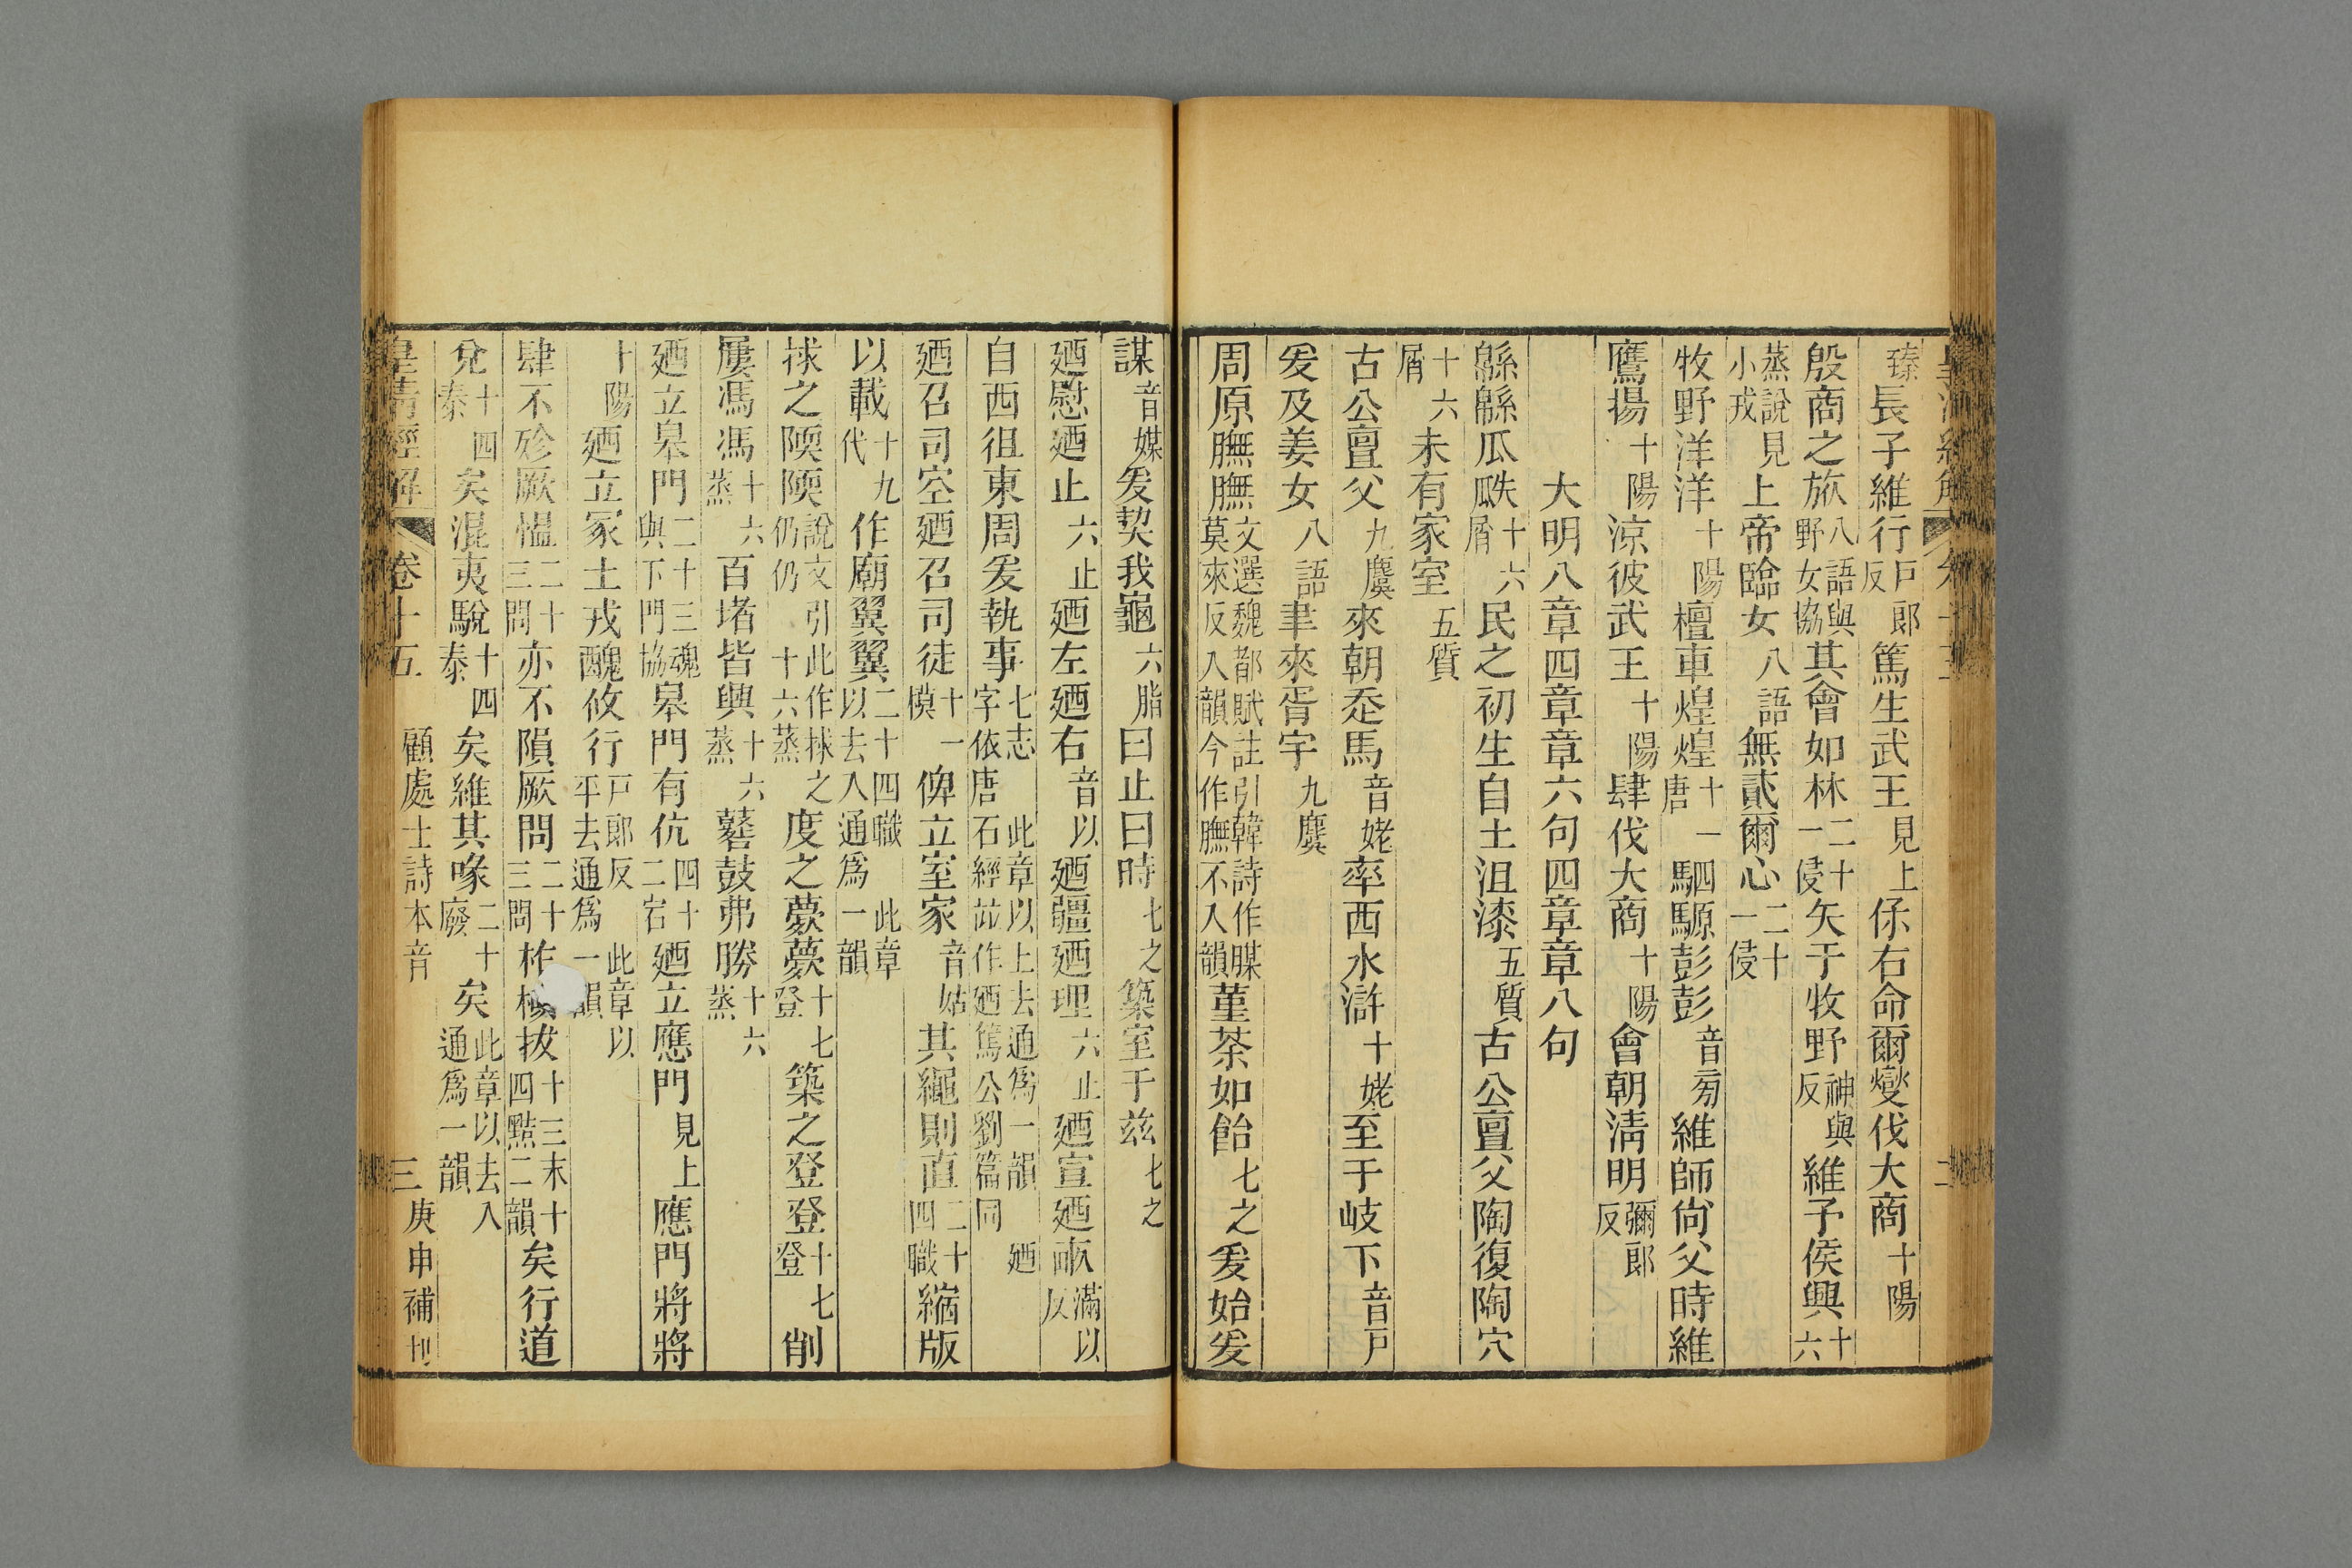 臻長子維行戸郎反篤生武王見上保右命爾燮伐大商十陽
殷商之旅八語與野女協其會如林二十一侵矢于牧野神與反維予侯興十六
蒸說見小戎上帝臨女八語無貳爾心二十一侵
牧野洋洋十陽檀車煌煌十一唐駟騵彭彭音旁維師尙父時維
鷹揚十陽涼彼武王十陽肆伐大商十陽會朝淸明彌郎反
大明八章四章章六句四章章八句
緜緜瓜瓞十六屑民之初生自土沮漆五質古公亶父陶復陶穴
十六屑未有家室五質
古公亶父九麌來朝走馬音姥率西水滸十姥至于岐下音戸
爰及姜女八語聿來胥宇九麌
周原膴膴文選魏都賦註引韓詩作腜莫來反入韻今作膴不入韻菫荼如飴七之爰始爰
謀音媒爰契我龜六脂曰止曰時七之築室于兹七之
廼慰廼止六止廼左廼右音以廼疆廼理六止廼宣廼畝滿以反
自西徂東周爰執事七志此章以上去通爲一韻廼字依唐石經竝作廼篤公劉篇同
廼召司空廼召司徒十一模俾立室家音姑其繩則直二十四職縮版
以載十九代作廟翼翼二十四職此章以去入通爲一韻
捄之陾陾說文引此作捄之仍仍十六蒸度之薨薨十七登築之登登十七登削
屢馮馮十六蒸百堵皆興十六蒸鼛鼓弗勝十六蒸
廼立皋門二十三魂與下門協皋門有伉四十二宕廼立應門見上應門將將
十陽廼立冢土戎醜攸行戸郎反此章以平去通爲一韻
肆不殄厥慍二十三問亦不隕厥問二十三問柞棫拔十三末十四黠二韻矣行道
兌十四泰矣混夷駾十四泰矣維其喙二十廢矣此章以去入通爲一韻
皇淸經解 卷十五 顧處士詩本音 三 庚申補刊